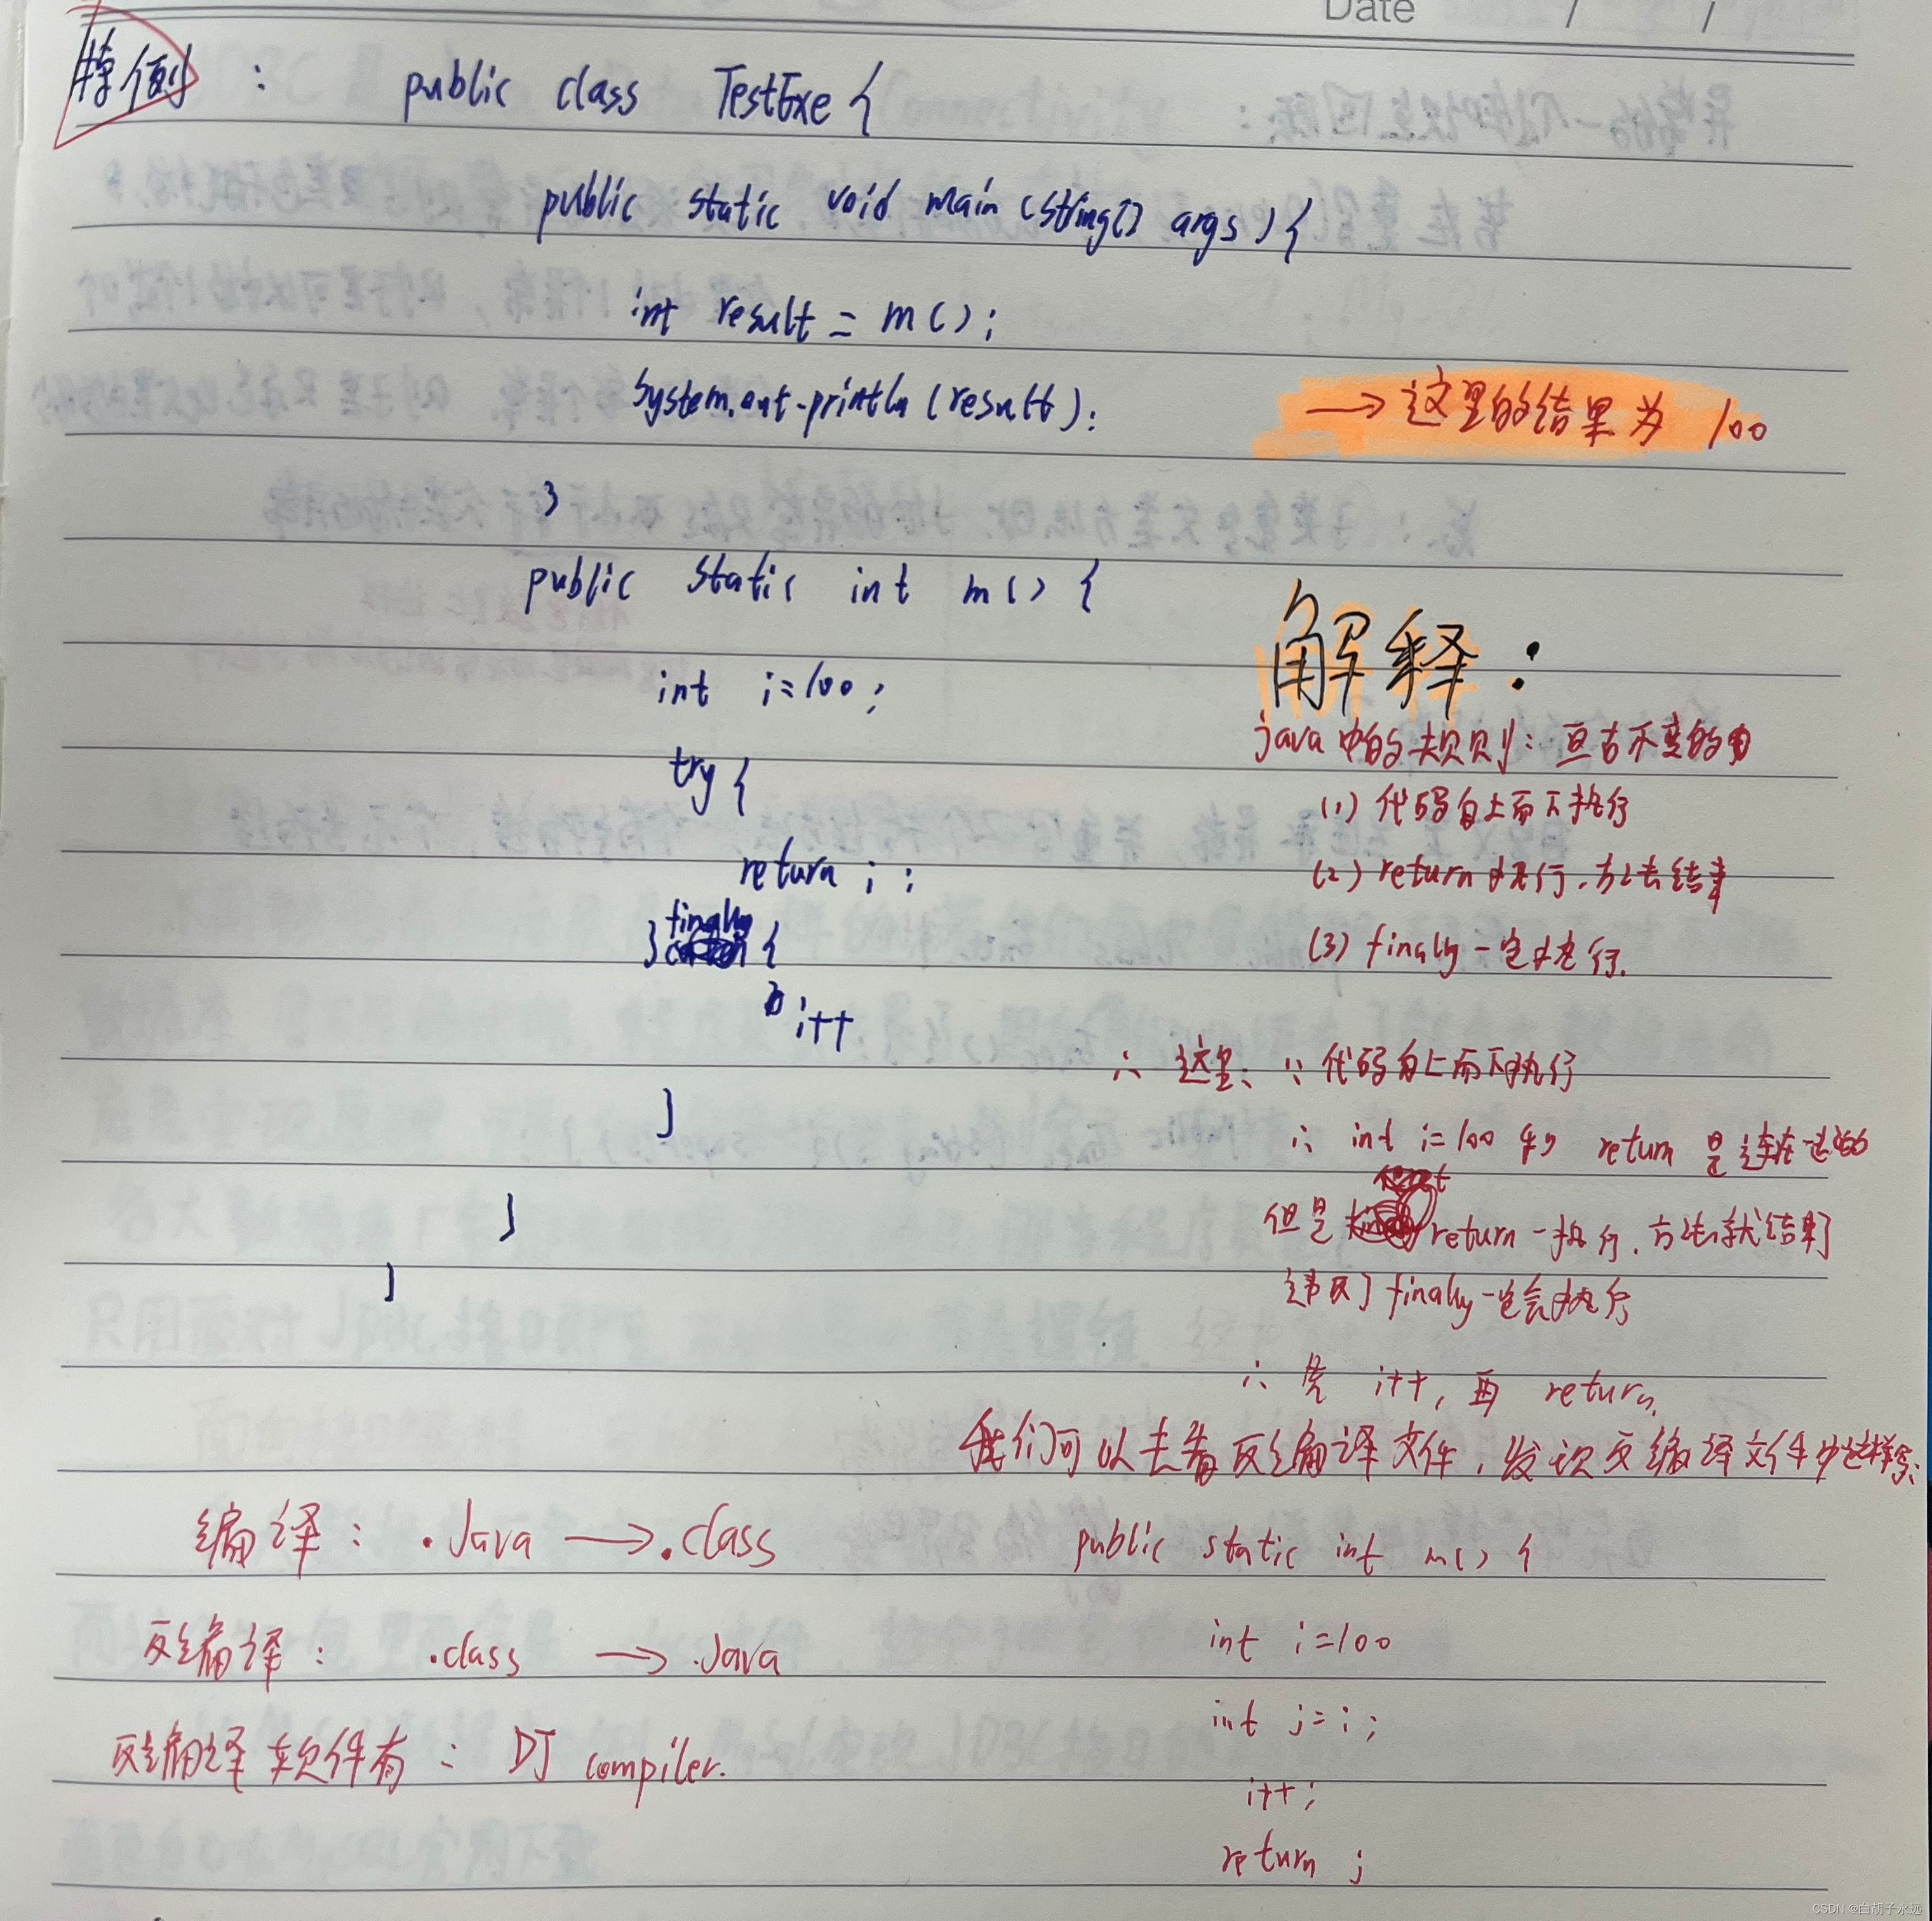 Date / /
特例 : public class TestExe {
public static void main (String[] args) {
int result = m();
System.out.println(result); → 这里的结果为 100
}
public static int m() {
解释：
int i=100;
java中的规则：亘古不变的
try {
(1) 代码自上而下执行
return i;
(2) return执行，方法结束
} finally {
(3) finally一定执行.
i++
∴ 这里: ∵ 代码自上而下执行
}
∴ int i=100 和 return 是连在一起的
}
但是 return一执行，方法就结束了
}
违反了 finally一定会执行
∴ 先 i++, 再 return.
我们可以去看反编译文件，发现反编译文件中这样写:
编译： .Java → .class
public static int m() {
反编译： .class → .Java
int i=100
int j=i;
反编译软件有： DJ compiler.
i++;
return j
CSDN @白胡子永远